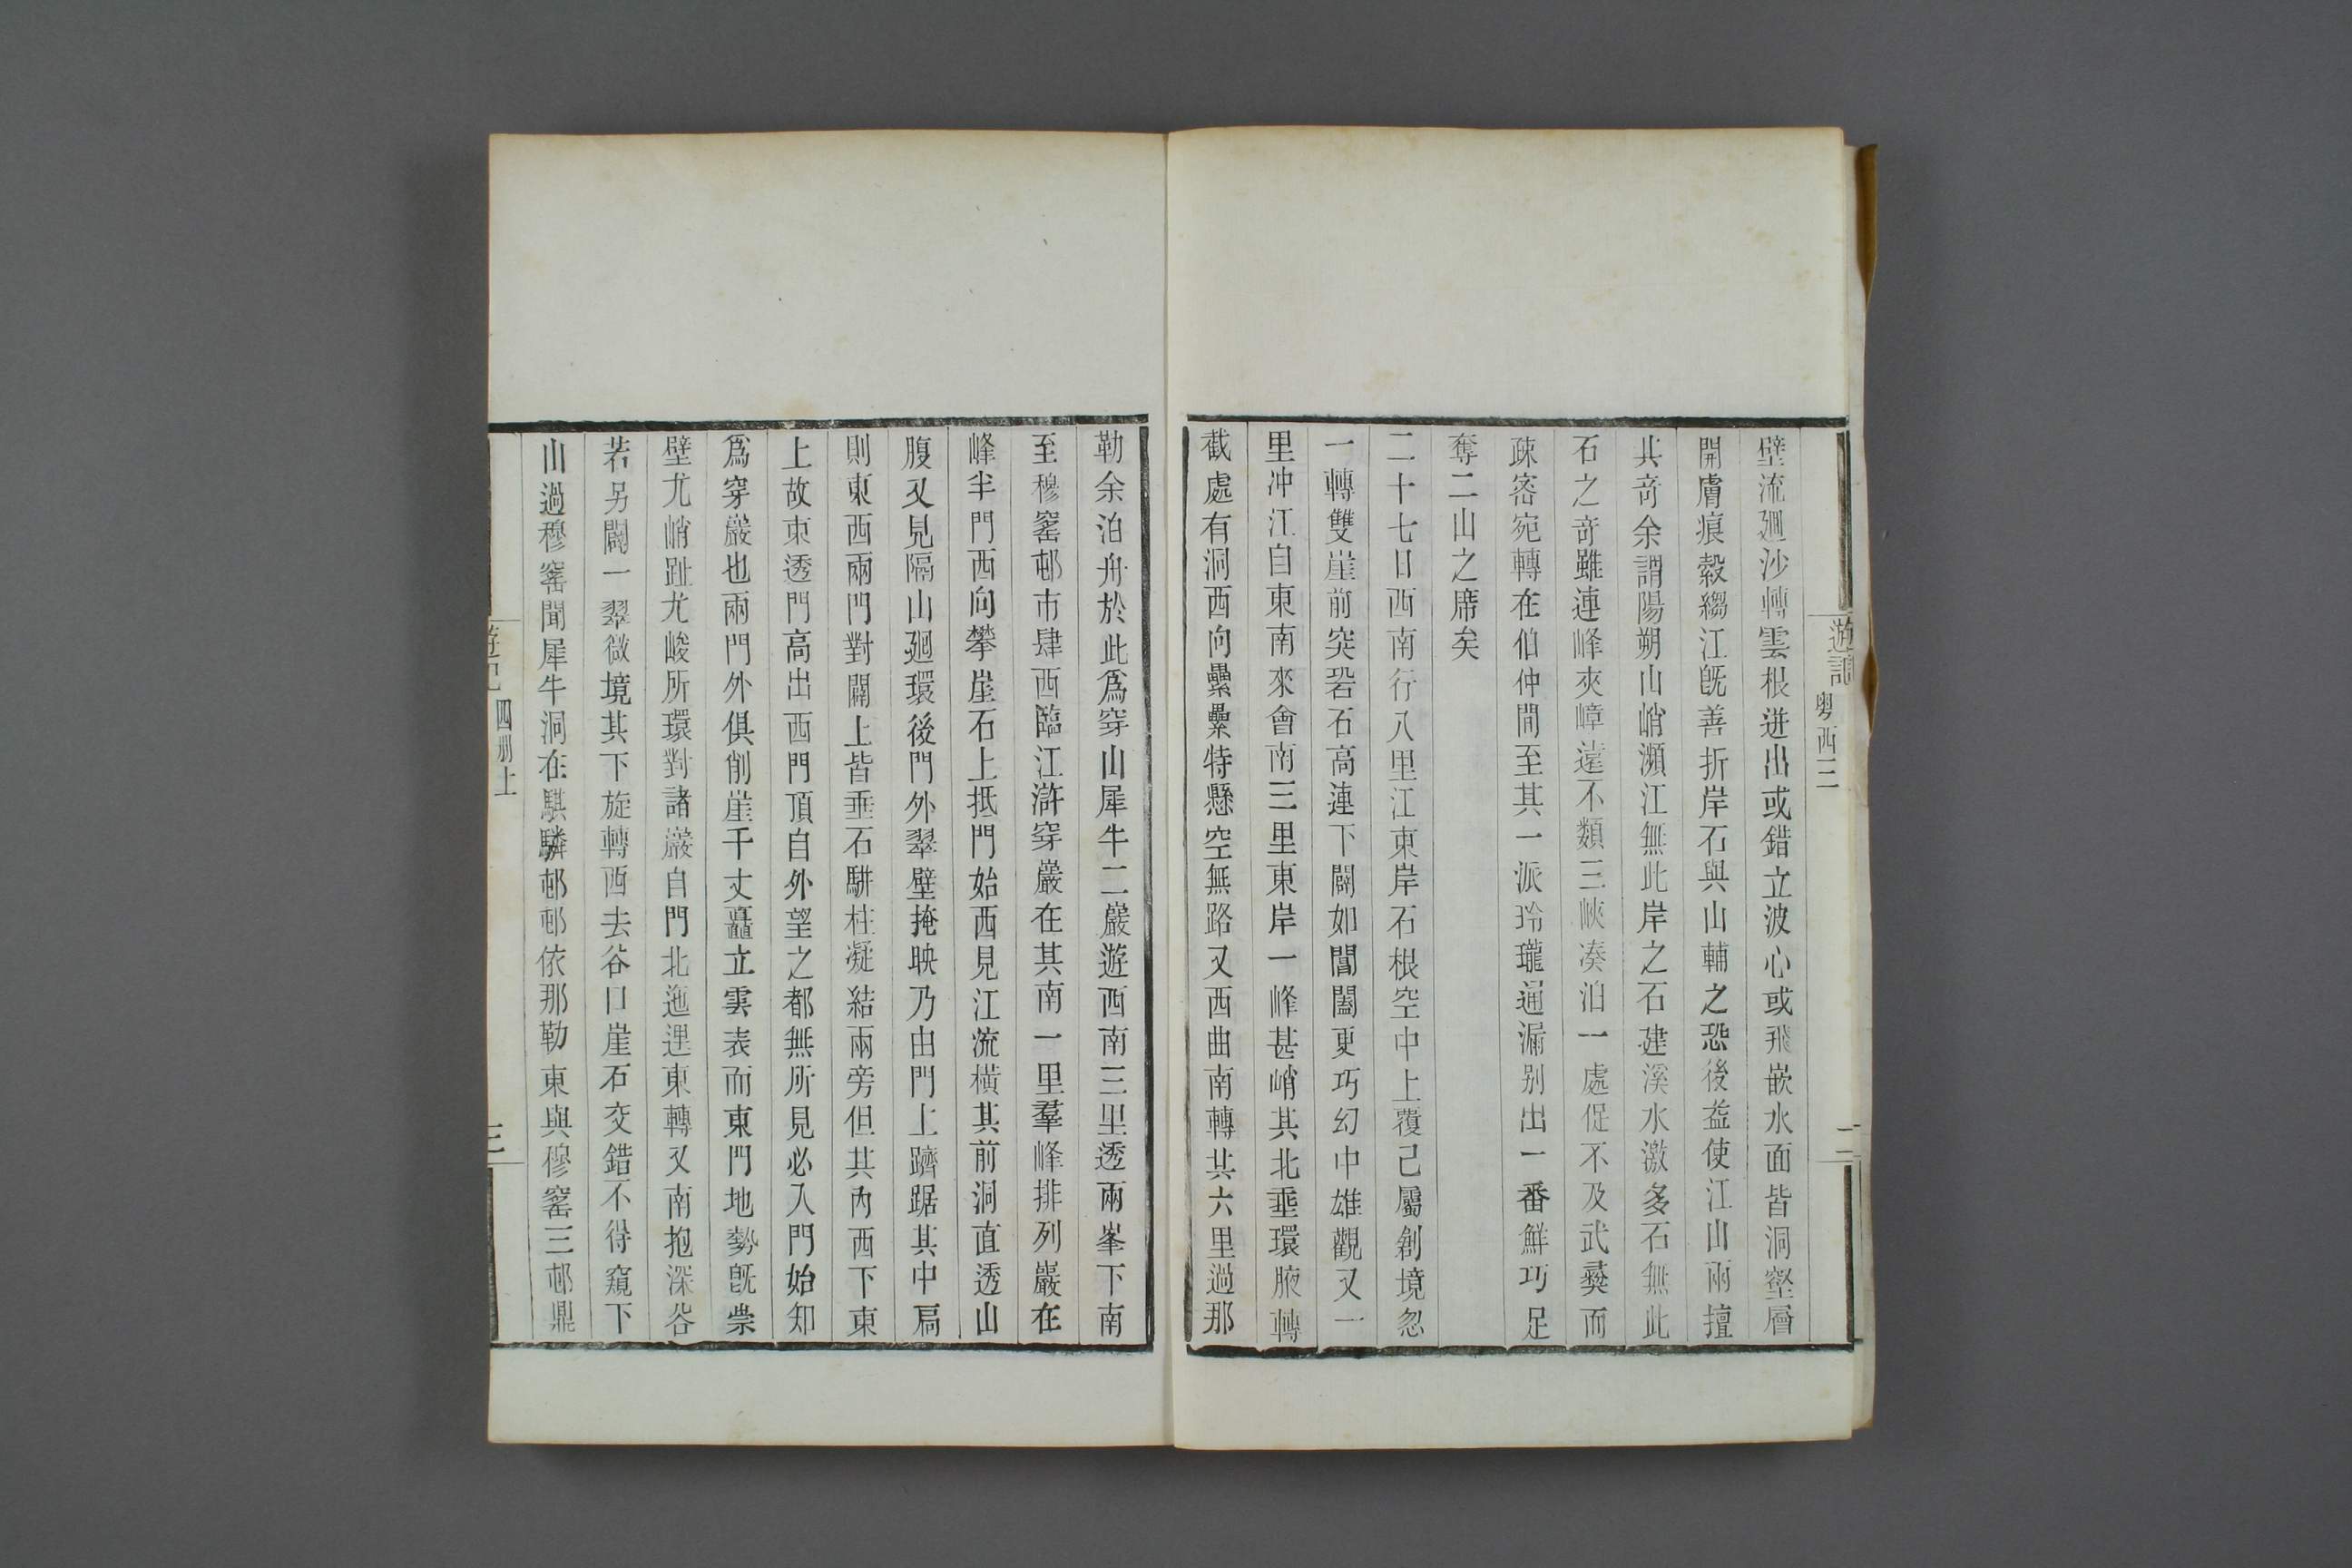 遊記
粵西三
二
壁流廻沙轉雲根迸出或錯立波心或飛嵌水面皆洞壑層
開膚痕縠縐江旣善折岸石與山輔之恐後益使江山兩擅
其竒余謂陽朔山峭瀕江無此岸之石建溪水激多石無此
石之竒雖連峰夾嶂遠不類三峽凑泊一處促不及武彝而
疎宻宛轉在伯仲間至其一派玲瓏通漏别出一番鮮巧足
奪二山之席矣
二十七日西南行八里江東岸石根空中上覆已屬創境忽
一轉雙崖前突碞石高連下闢如閶闔更巧幻中雄觀又一
里冲江自東南來會南三里東岸一峰甚峭其北垂環腋轉
截處有洞西向纍纍特懸空無路又西曲南轉共六里過那
勒余泊舟於此爲穿山犀牛二巖遊西南三里透兩峯下南
至穆窰邨市肆西臨江滸穿巖在其南一里羣峰排列巖在
峰半門西向攀崖石上抵門始西見江流橫其前洞直透山
腹又見隔山廻環後門外翠壁掩映乃由門上躋踞其中扃
則東西兩門對闢上皆垂石駢柱凝結兩旁但其內西下東
上故東透門高出西門頂自外望之都無所見必入門始知
爲穿巖也兩門外俱削崖千丈矗立雲表而東門地勢旣崇
壁尤峭趾尤峻所環對諸巖自門北迤邐東轉又南抱深谷
若另闢一翠微境其下旋轉西去谷口崖石交錯不得窺下
山過穆窰聞犀牛洞在騏驎邨邨依那勒東與穆窰三邨鼎
遊記
四册上
三